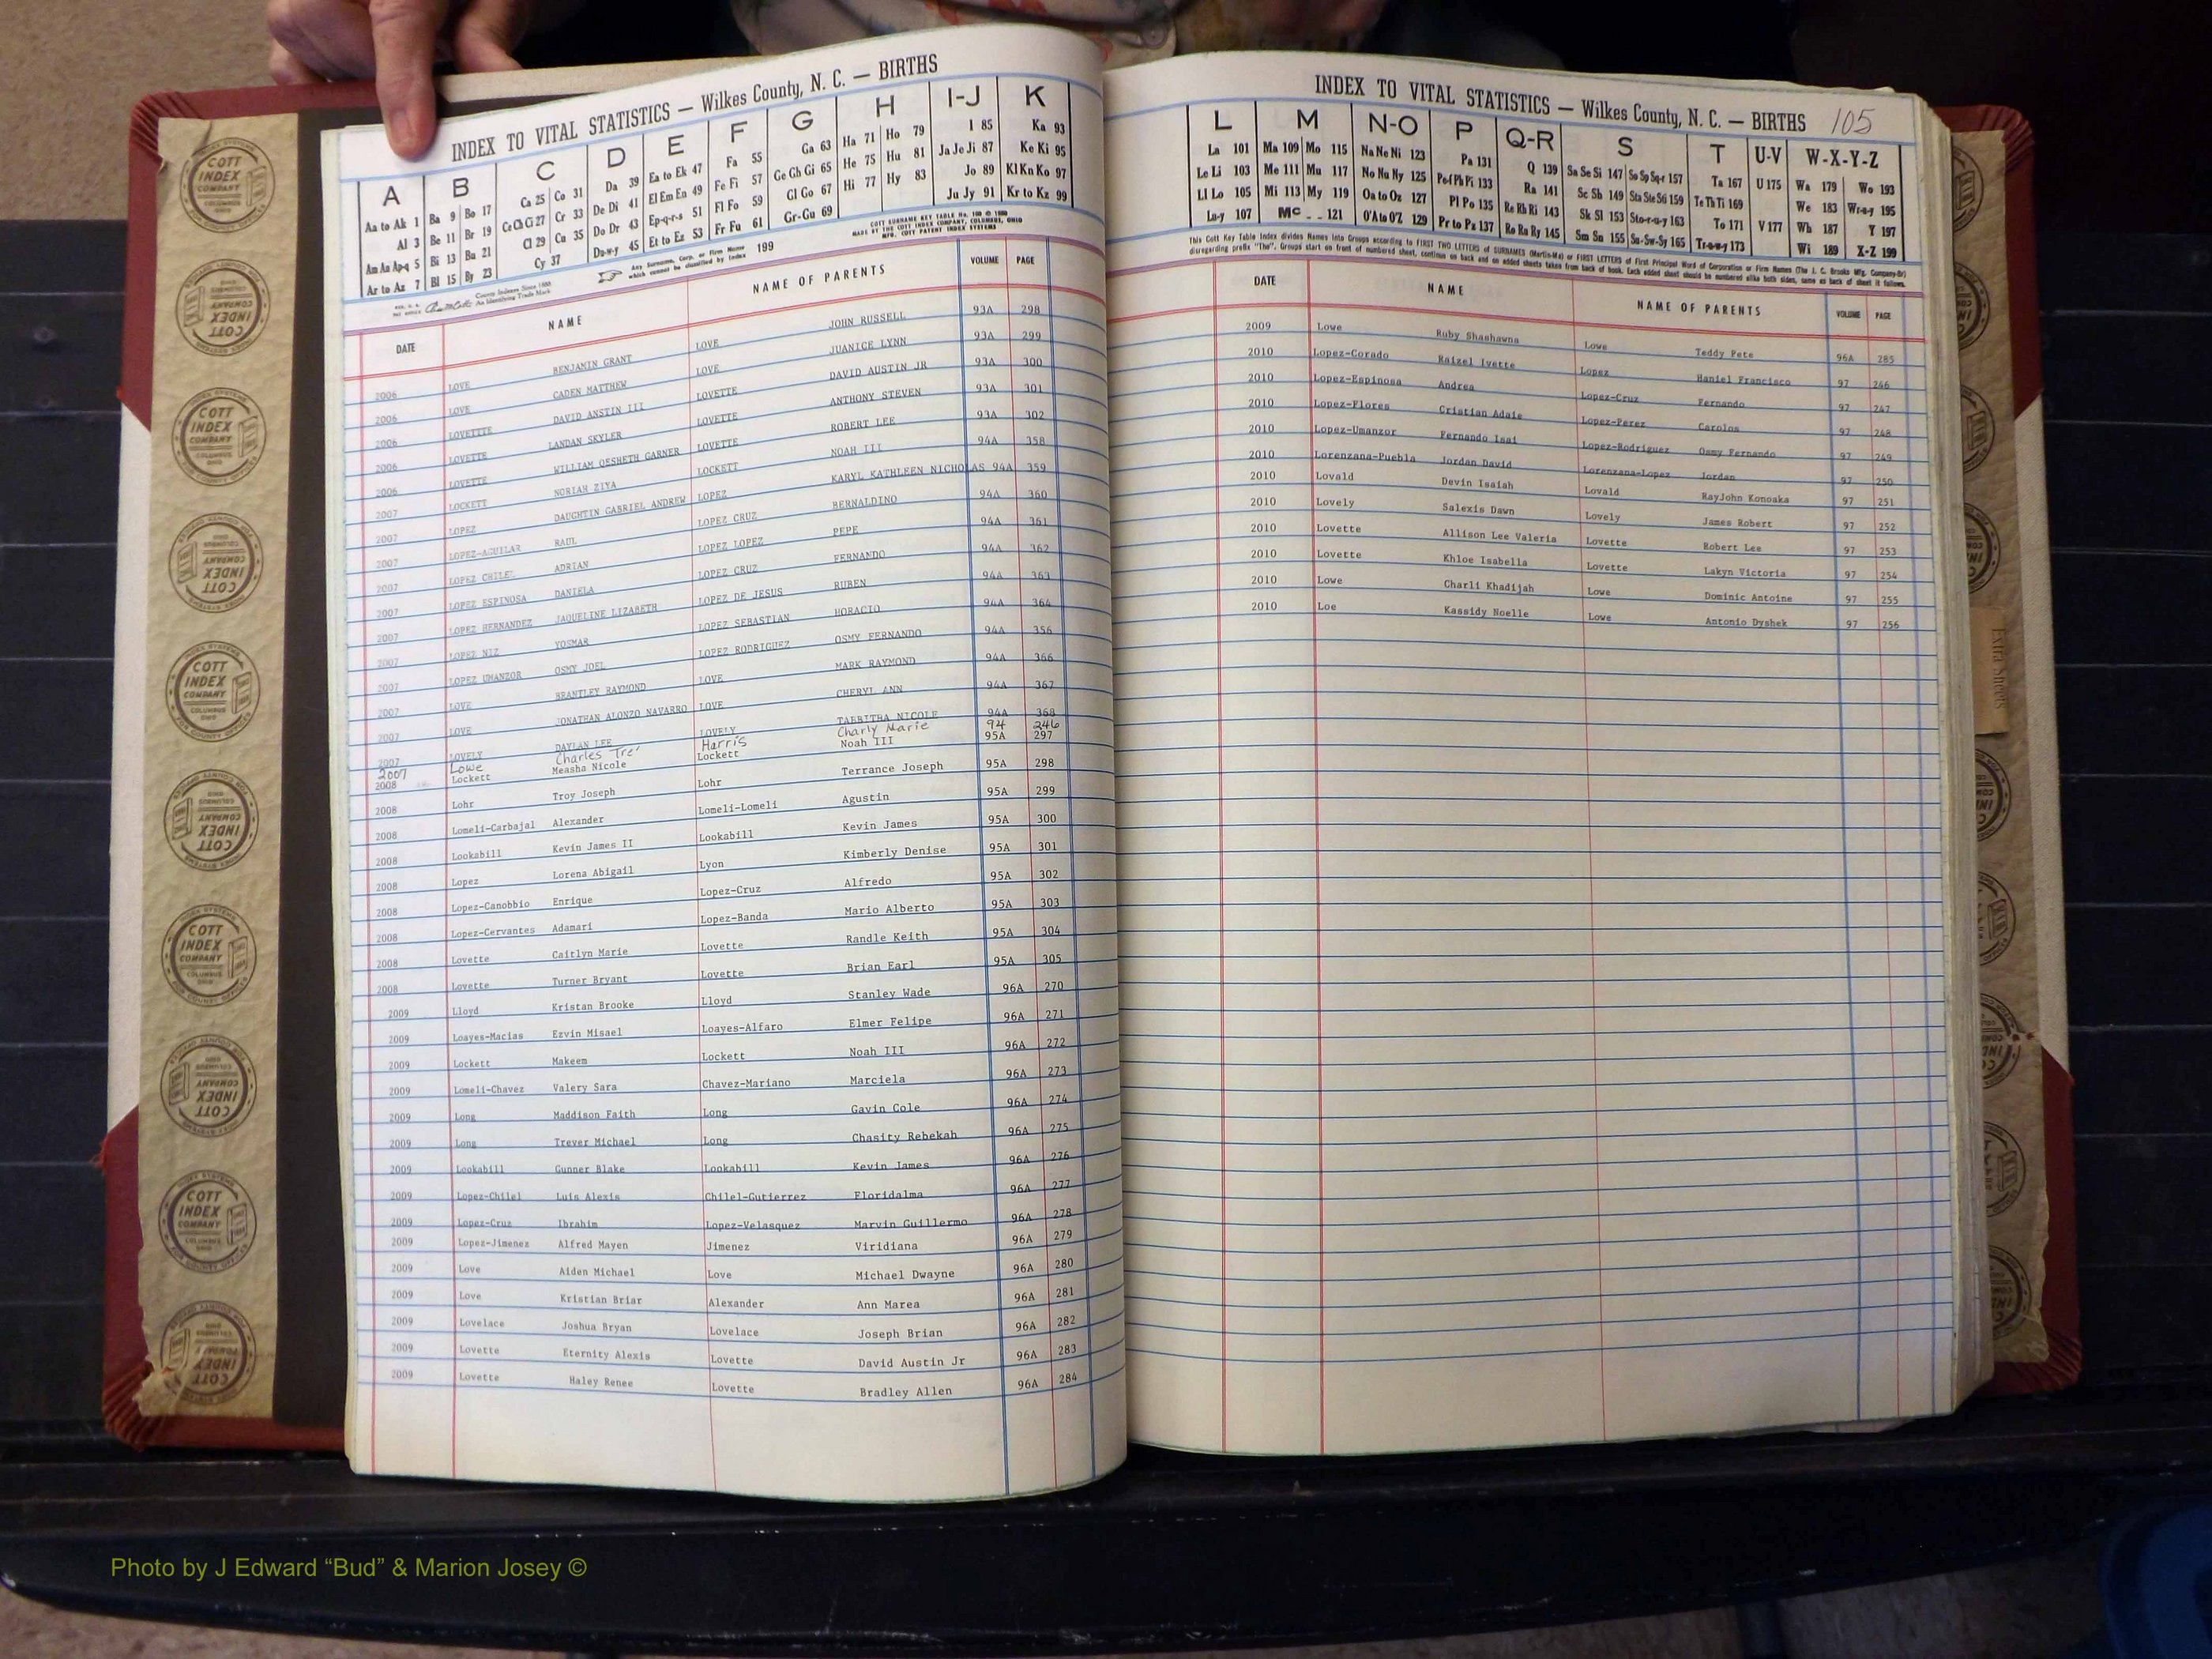 INDEX TO VITAL STATISTICS — Wilkes County, N. C. — BIRTHS
A B C D E F G H I-J K
Aa to Ak 1 Ba 9 Bo 17 Ca 25 Co 31 Da 39 Ea to Ek 47 Fa 55 Ga 63 Ha 71 Ho 79 I 85 Ka 93
Al 3 Be 11 Br 19 Ce Ch Ci 27 Cr 33 De Di 41 El Em En 49 Fe Fi 57 Ge Gh Gi 65 He 75 Hu 81 Ja Je Ji 87 Ke Ki 95
Am An Ap-q 5 Bi 13 Bu 21 Cl 29 Cu 35 Do Dr 43 Ep-q-r-s 51 Fl Fo 59 Gl Go 67 Hi 77 Hy 83 Jo 89 Kl Kn Ko 97
Ar to Az 7 Bl 15 By 23 Cy 37 Du-w-y 45 Et to Ez 53 Fr Fu 61 Gr-Gu 69 Ju Jy 91 Kr to Kz 99
Any Surname, Corp. or Firm Name which cannot be classified by Index 199
DATE NAME NAME OF PARENTS VOLUME PAGE
2006 LOVE BENJAMIN GRANT LOVE JOHN RUSSELL 93A 298
2006 LOVE CADEN MATTHEW LOVE JUANICE LYNN 93A 299
2006 LOVETTE DAVID ANSTIN III LOVETTE DAVID AUSTIN JR 93A 300
2006 LOVETTE LANDAN SKYLER LOVETTE ANTHONY STEVEN 93A 301
2006 LOVETTE WILLIAM QESHETH GARNER LOVETTE ROBERT LEE 93A 302
2007 LOCKETT NORIAH ZIYA LOCKETT NOAH III 94A 358
2007 LOPEZ DAUGHTIN GABRIEL ANDREW LOPEZ KARYL KATHLEEN NICHOLAS 94A 359
2007 LOPEZ-AGUILAR RAUL LOPEZ CRUZ BERNALDINO 94A 360
2007 LOPEZ CHILEL ADRIAN LOPEZ LOPEZ PEPE 94A 361
2007 LOPEZ ESPINOSA DANIELA LOPEZ CRUZ FERNANDO 94A 362
2007 LOPEZ HERNANDEZ JAQUELINE LIZABETH LOPEZ DE JESUS RUBEN 94A 363
2007 LOPEZ NIZ YOSMAR LOPEZ SEBASTIAN HORACIO 94A 364
2007 LOPEZ UMANZOR OSMY JOEL LOPEZ RODRIGUEZ OSMY FERNANDO 94A 356
2007 LOVE BRANTLEY RAYMOND LOVE MARK RAYMOND 94A 366
2007 LOVE JONATHAN ALONZO NAVARRO LOVE CHERYL ANN 94A 367
2007 LOVELY DAYLAN LEE LOVELY TABBITHA NICOLE 94A 368
2007 Lowe Charles Tre' Harris Charly Marie 94 246
2008 Lockett Measha Nicole Lockett Noah III 95A 297
2008 Lohr Troy Joseph Lohr Terrance Joseph 95A 298
2008 Lomeli-Carbajal Alexander Lomeli-Lomeli Agustin 95A 299
2008 Lookabill Kevin James II Lookabill Kevin James 95A 300
2008 Lopez Lorena Abigail Lyon Kimberly Denise 95A 301
2008 Lopez-Canobbio Enrique Lopez-Cruz Alfredo 95A 302
2008 Lopez-Cervantes Adamari Lopez-Banda Mario Alberto 95A 303
2008 Lovette Caitlyn Marie Lovette Randle Keith 95A 304
2008 Lovette Turner Bryant Lovette Brian Earl 95A 305
2009 Lloyd Kristan Brooke Lloyd Stanley Wade 96A 270
2009 Loayes-Macias Ezvin Misael Loayes-Alfaro Elmer Felipe 96A 271
2009 Lockett Makeem Lockett Noah III 96A 272
2009 Lomeli-Chavez Valery Sara Chavez-Mariano Marciela 96A 273
2009 Long Maddison Faith Long Gavin Cole 96A 274
2009 Long Trever Michael Long Chasity Rebekah 96A 275
2009 Lookabill Gunner Blake Lookabill Kevin James 96A 276
2009 Lopez-Chilel Luis Alexis Chilel-Gutierrez Floridalma 96A 277
2009 Lopez-Cruz Ibrahim Lopez-Velasquez Marvin Guillermo 96A 278
2009 Lopez-Jimenez Alfred Mayen Jimenez Viridiana 96A 279
2009 Love Aiden Michael Love Michael Dwayne 96A 280
2009 Love Kristian Briar Alexander Ann Marea 96A 281
2009 Lovelace Joshua Bryan Lovelace Joseph Brian 96A 282
2009 Lovette Eternity Alexis Lovette David Austin Jr 96A 283
2009 Lovette Haley Renee Lovette Bradley Allen 96A 284
INDEX TO VITAL STATISTICS — Wilkes County, N. C. — BIRTHS 105
L M N-O P Q-R S T U-V W-X-Y-Z
La 101 Ma 109 Mo 115 Na Ne Ni 123 Pa 131 Q 139 Sa Se Si 147 So Sp Sq-r 157 Ta 167 U 175 Wa 179 Wo 193
Le Li 103 Me 111 Mu 117 No Nu Ny 125 Pe-f Ph Pi 133 Ra 141 Sc Sh 149 Sta Ste Sti 159 Te Th Ti 169 We 183 Wr-u-y 195
Ll Lo 105 Mi 113 My 119 Oa to Oz 127 Pl Po 135 Re Rh Ri 143 Sk Sl 153 Sto-r-u-y 163 To 171 V 177 Wh 187 Y 197
Lu-y 107 Mc 121 O'A to O'Z 129 Pr to Pz 137 Ro Ru Ry 145 Sm Sn 155 Su-Sw-Sy 165 Tr-u-w-y 173 Wi 189 X-Z 199
This Cott Key Table Index divides Names into Groups according to FIRST TWO LETTERS of SURNAMES (Martin-Ma) or FIRST LETTERS of First Principal Word of Corporation or Firm Names (The J. C. Brooks Mfg. Company-Br)
disregarding prefix "The". Groups start on front of numbered sheet, continue on back and on added sheets taken from back of book. Each added sheet should be numbered alike both sides, same as back of sheet it follows.
DATE NAME NAME OF PARENTS VOLUME PAGE
2009 Lowe Ruby Shashawna Lowe Teddy Pete 96A 285
2010 Lopez-Corado Raizel Ivette Lopez Haniel Francisco 97 246
2010 Lopez-Espinosa Andrea Lopez-Cruz Fernando 97 247
2010 Lopez-Flores Cristian Adaie Lopez-Perez Carolos 97 248
2010 Lopez-Umanzor Fernando Isai Lopez-Rodriguez Osmy Fernando 97 249
2010 Lorenzana-Puebla Jordan David Lorenzana-Lopez Jordan 97 250
2010 Lovald Devin Isaiah Lovald RayJohn Konoaka 97 251
2010 Lovely Salexis Dawn Lovely James Robert 97 252
2010 Lovette Allison Lee Valeria Lovette Robert Lee 97 253
2010 Lovette Khloe Isabella Lovette Lakyn Victoria 97 254
2010 Lowe Charli Khadijah Lowe Dominic Antoine 97 255
2010 Loe Kassidy Noelle Lowe Antonio Dyshek 97 256
Extra Sheets
COTT INDEX COMPANY COLUMBUS OHIO
Photo by J Edward “Bud” & Marion Josey ©